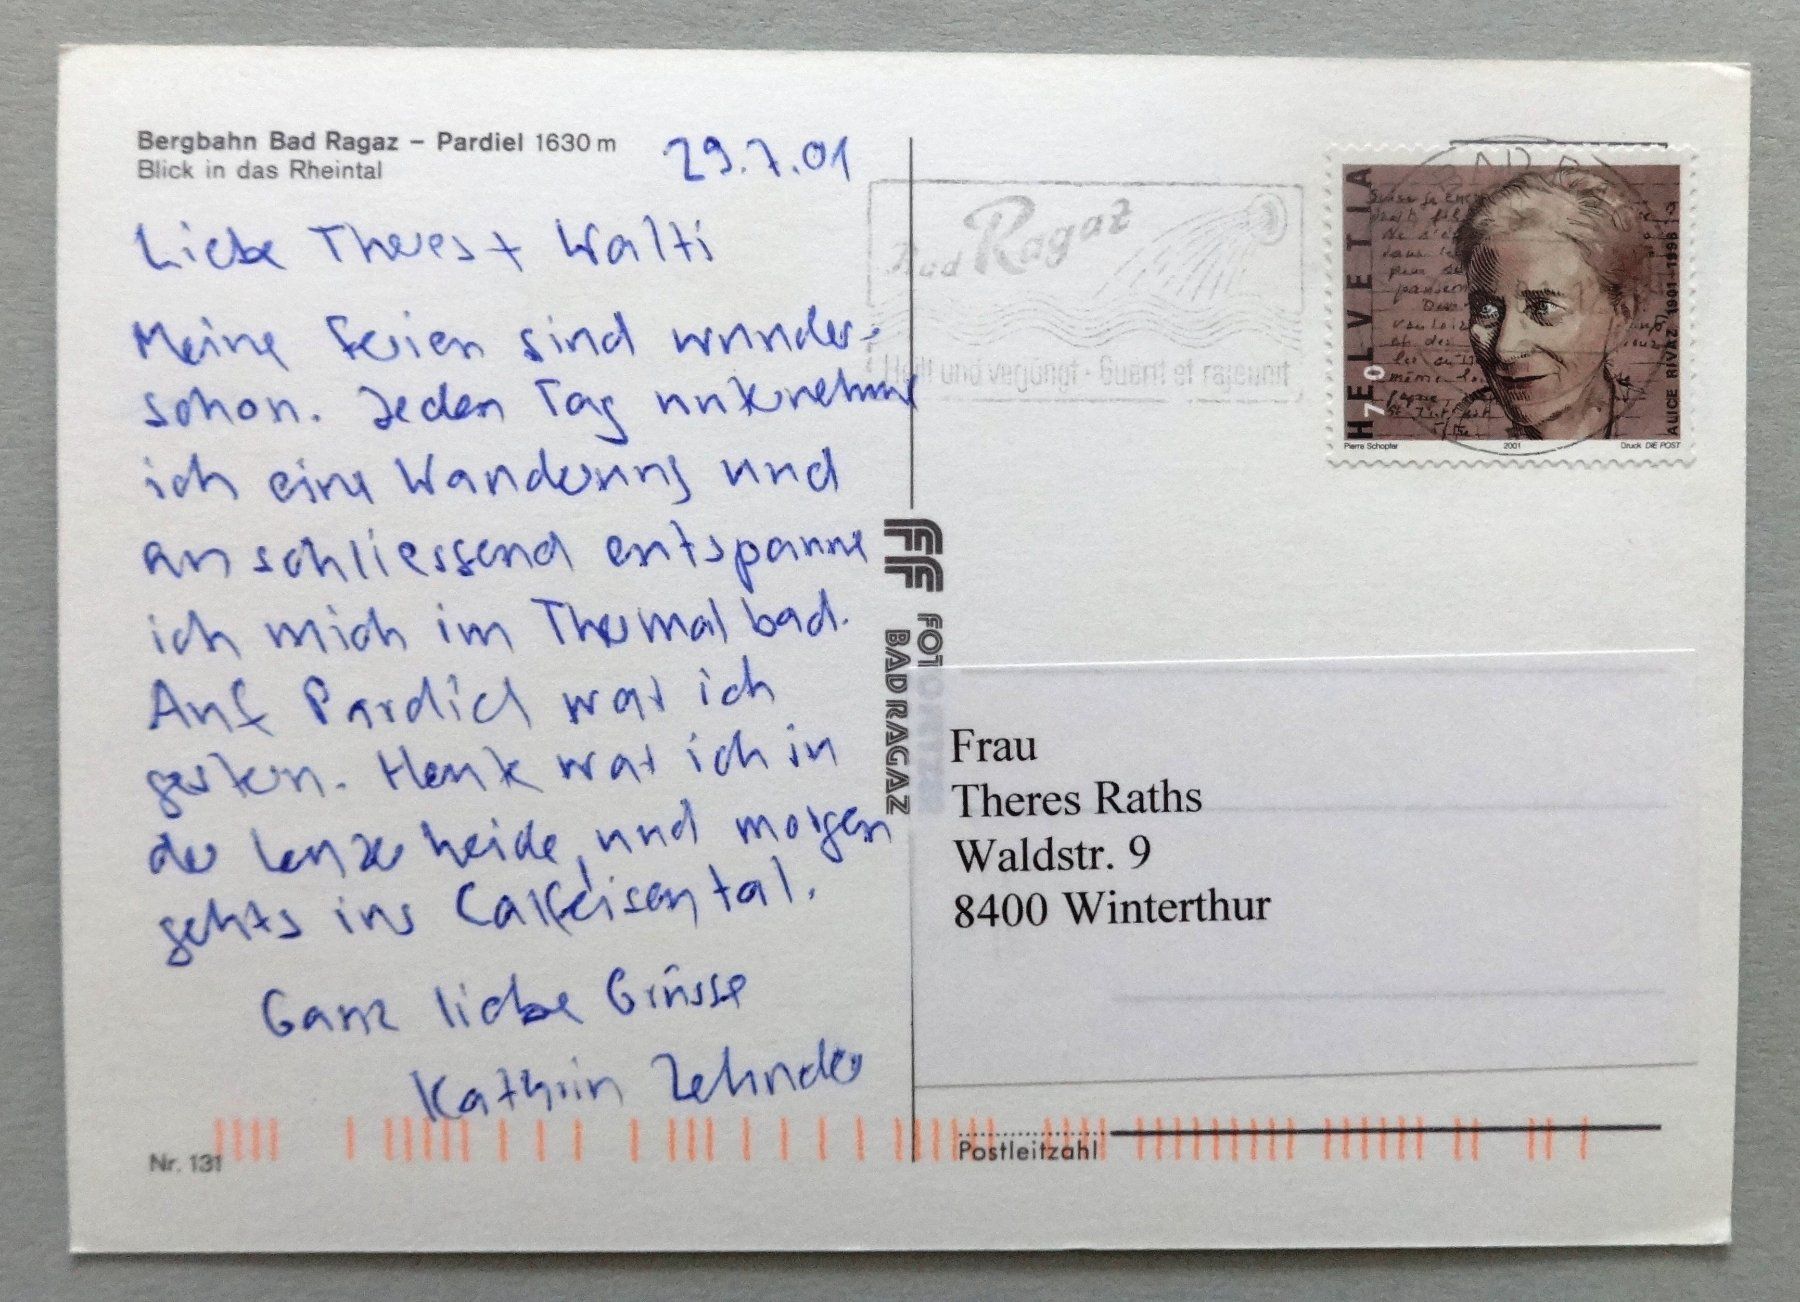 Bergbahn Bad Ragaz – Pardiel 1630 m
Blick in das Rheintal
29.7.01
Liebe Theres + Walti
Meine Ferien sind wunder-
schön. Jeden Tag unternehme
ich eine Wanderung und
anschliessend entspanne
ich mich im Thermalbad.
Auf Pardiel war ich
gestern. Heute war ich in
der Lenzerheide, und morgen
gehts ins Calfeisental.
Ganz liebe Grüsse
Kathrin Zehnder
Nr. 131
FOTO
BAD RAGAZ
Bad Ragaz
Heilt und verjüngt · Guérit et rajeunit
HELVETIA
70
ALICE RIVAZ 1901–1998
Pierre Schopfer 2001 Druck DIE POST
Frau
Theres Raths
Waldstr. 9
8400 Winterthur
Postleitzahl